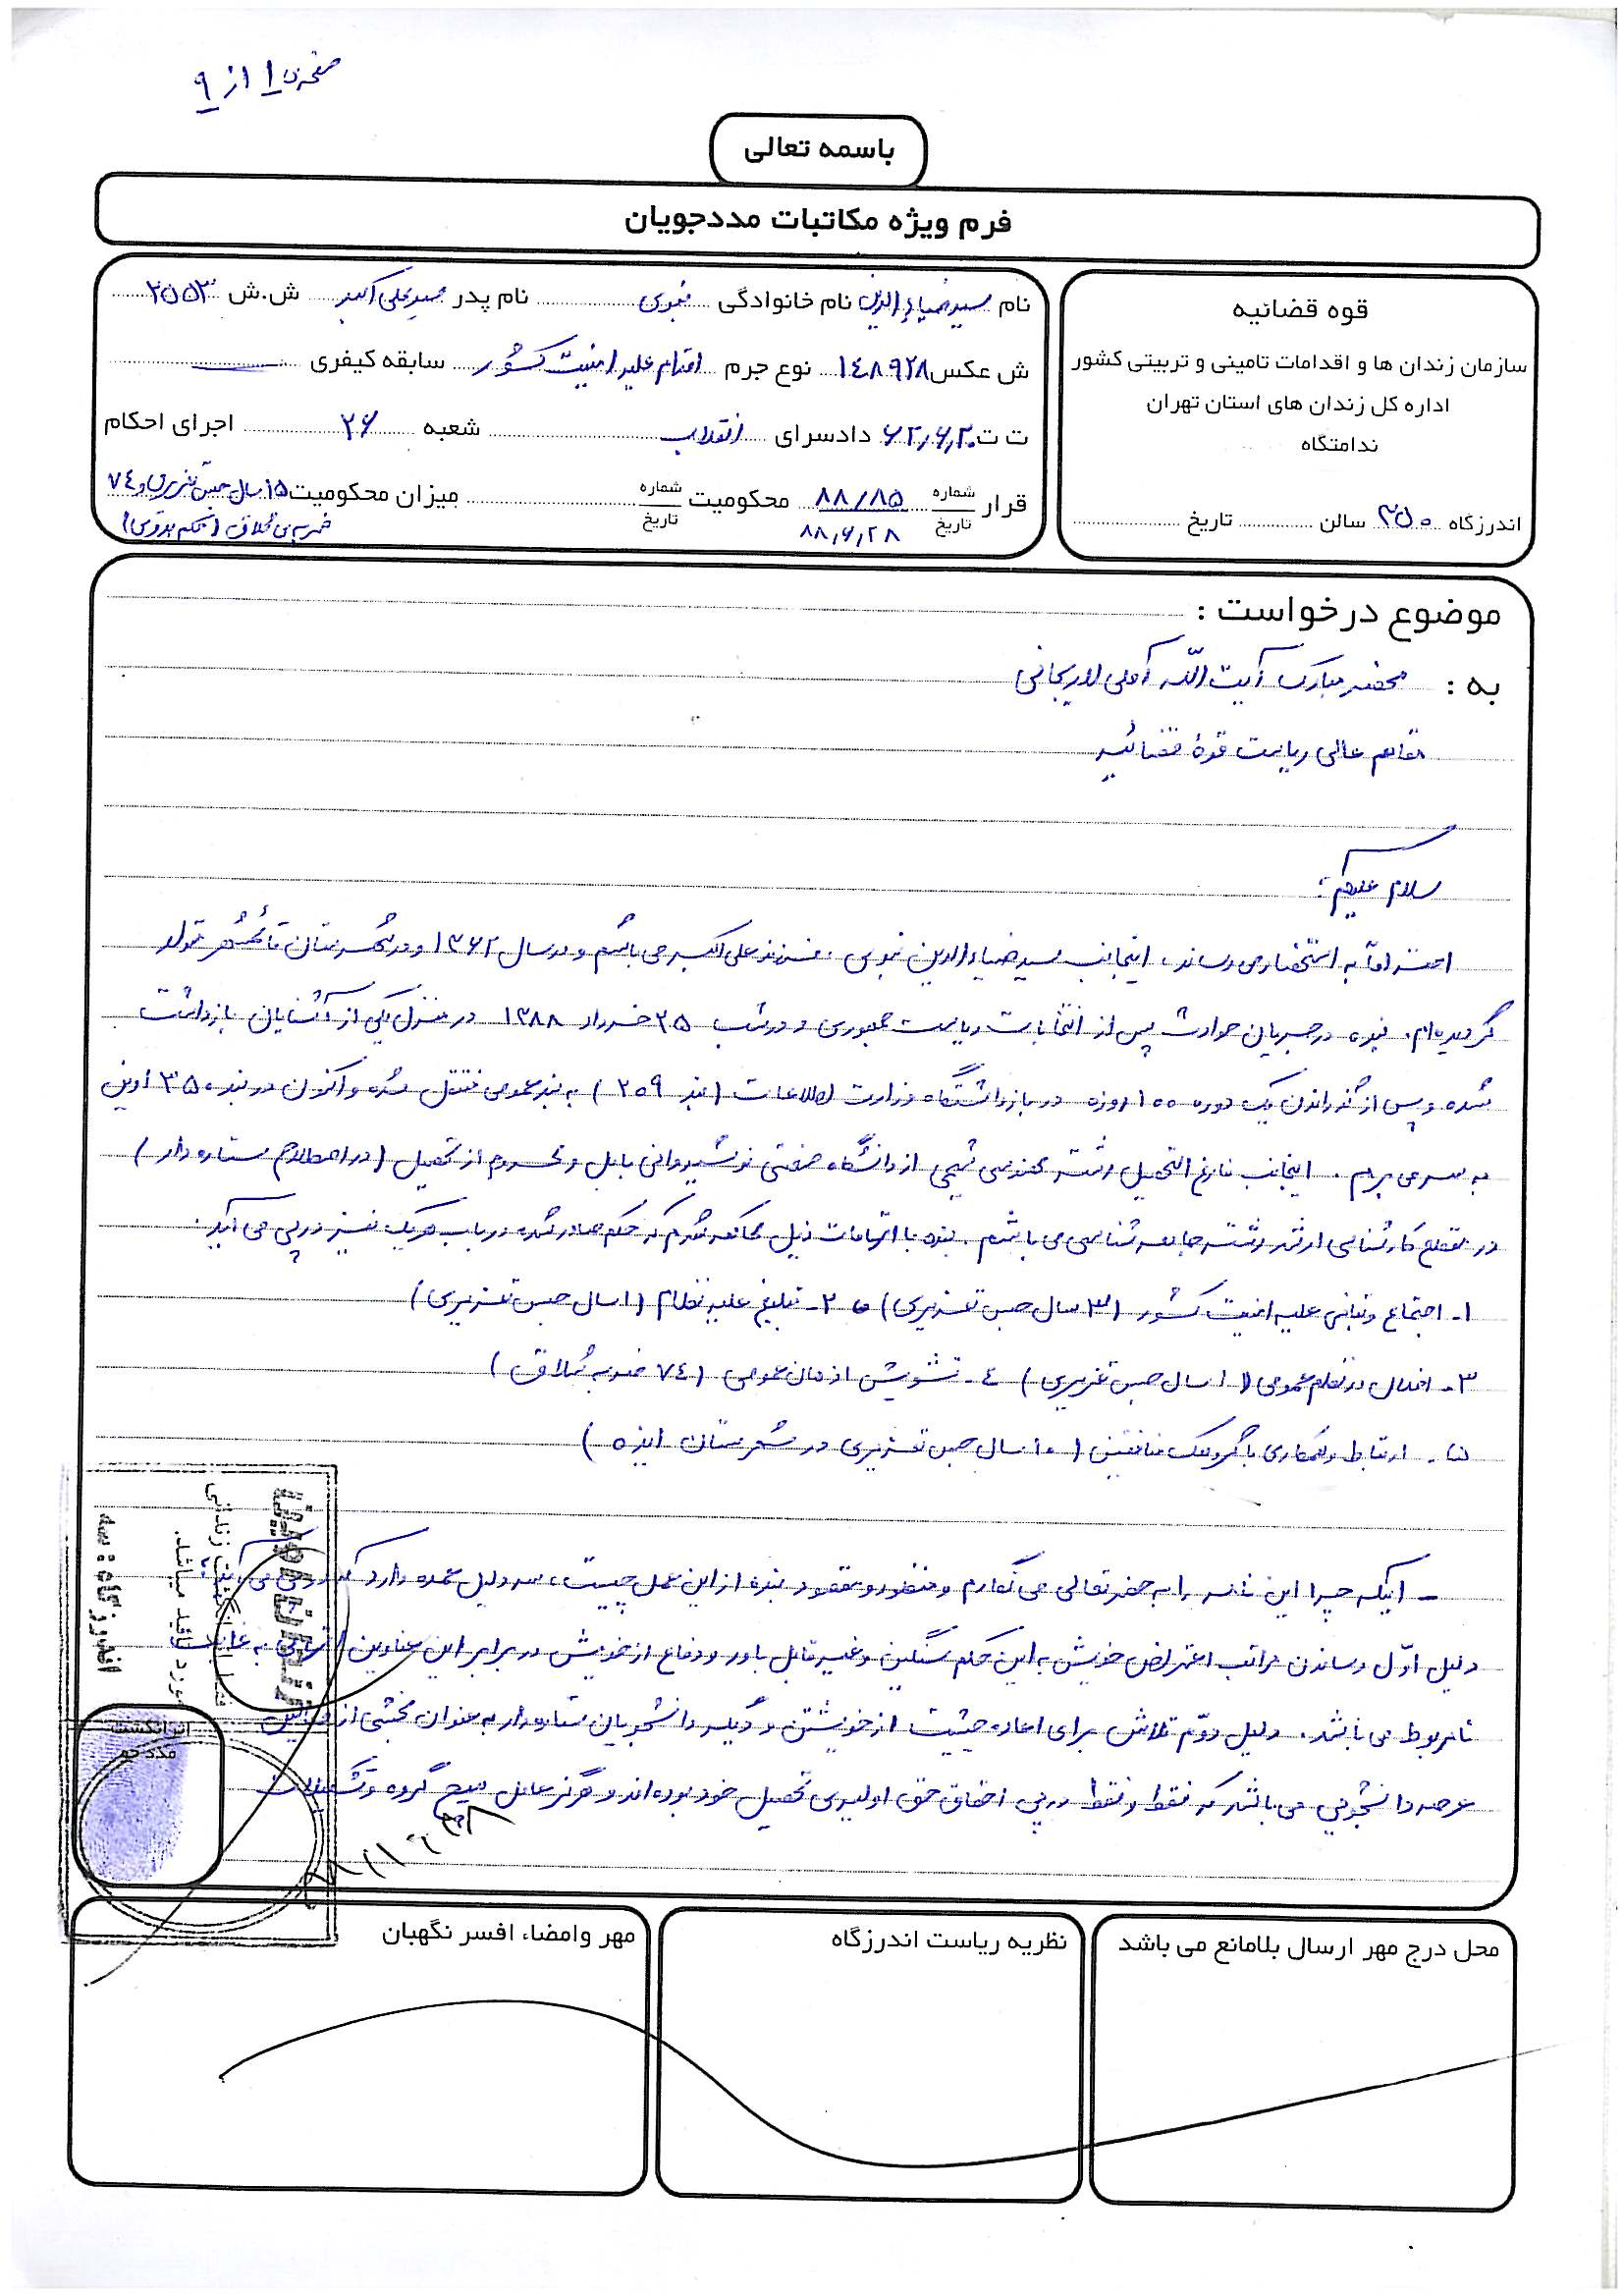 صفحه‌ی ۱ از ۹
باسمه تعالی
فرم ویژه مکاتبات مددجویان
قوه قضائیه
سازمان زندان ها و اقدامات تامینی و تربیتی کشور
اداره کل زندان های استان تهران
ندامتگاه
اندرزگاه ۳۵۰ سالن تاریخ
نام سید ضیاءالدین نام خانوادگی نبوی نام پدر سیدعلی اکبر ش.ش ۲۵۵۳
ش عکس ۱۴۸۹۲۸ نوع جرم اقدام علیه امنیت کشور سابقه کیفری
ت ت ۶۲/۶/۲۰ دادسرای انقلاب شعبه ۲۶ اجرای احکام
قرار شماره تاریخ ۸۸/۸۵ ۸۸/۶/۲۸ محکومیت شماره تاریخ میزان محکومیت ۱۵ سال حبس تعزیری و ۷۴
ضربه‌ی شلاق (حکم بدوی)
موضوع درخواست :
به : محضر مبارک آیت اللّه آملی لاریجانی
مقام عالی ریاست قوهٔ قضائیه
سلام علیکم؛
احتراماً به استحضار می رساند، اینجانب سید ضیاءالدین نبوی، فرزند علی اکبر می باشم و در سال ۱۳۶۲ و در شهرستان قائمشهر تولد
گردیده ام. بنده در جریان حوادث پس از انتخابات ریاست جمهوری و در شب ۲۵ خرداد ۱۳۸۸ در منزل یکی از آشنایان بازداشت
شده و پس از گذراندن یک دوره ۱۰۰ روزه در بازداشتگاه وزارت اطلاعات (بند ۲۵۹) به بند عمومی منتقل شده و اکنون در بند ۳۵۰ اوین
به سر می برم. اینجانب فارغ التحصیل رشته مهندسی شیمی از دانشگاه صنعتی نوشیروانی بابل و محروم از تحصیل (در اصطلاح ستاره دار)
در مقطع کارشناسی ارشد رشته جامعه شناسی می باشم. بنده با اتهامات ذیل محاکمه شدم که حکم صادر شده در باب هر یک نیز در پی می آید.
۱- اجتماع و تبانی علیه امنیت کشور (۳ سال حبس تعزیری) ۲- تبلیغ علیه نظام (۱ سال حبس تعزیری)
۳- اخلال در نظم عمومی (۱ سال حبس تعزیری) ۴- تشویش اذهان عمومی (۷۴ ضربه شلاق)
۵- ارتباط و همکاری با گروهک منافقین (۱۰ سال حبس تعزیری در شهرستان ایذه)
- اینکه چرا این نامه را به حضرتعالی می نگارم و منظور و مقصود بنده از این عمل چیست، سه دلیل عمده دارد که در پی می آید:
دلیل اوّل رساندن مراتب اعتراض خویش به این حکم سنگین و غیر قابل باور و دفاع از خویش در برابر این عناوین اتهامی به غایت
نامربوط می باشد. دلیل دوّم تلاش برای اعاده حیثیت از خویشتن و دیگر دانشجویان ستاره دار به عنوان بخشی از فعالین
عرصه دانشجویی می باشد که فقط و فقط در پی احقاق حق اولیه‌ی تحصیل خود بوده اند و هرگز عامل هیچ گروه و تشکیلات
زندان اوین
اندرزگاه : سه
اثر انگشت
مددجو
محل درج مهر ارسال بلامانع می باشد
نظریه ریاست اندرزگاه
مهر وامضاء افسر نگهبان